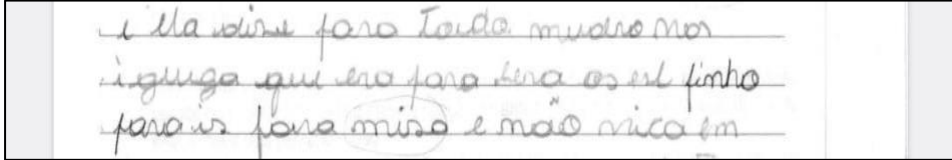 i lla dise para Toudo mudro nos
iguga que era para tera os est finho
para is para miso e mão nica em